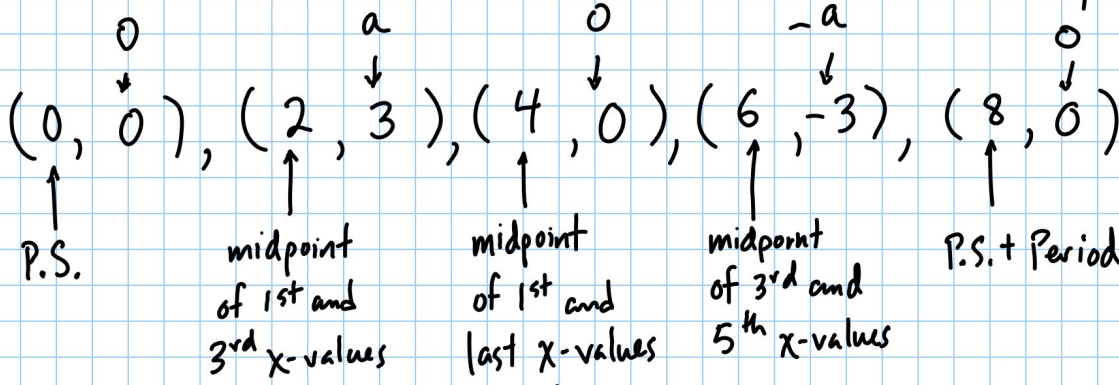 0 a 0 -a 0
(0, 0), (2, 3), (4, 0), (6, -3), (8, 0)
P.S.
midpoint
of 1st and
3rd x-values
midpoint
of 1st and
last x-values
midpoint
of 3rd and
5th x-values
P.S. + Period